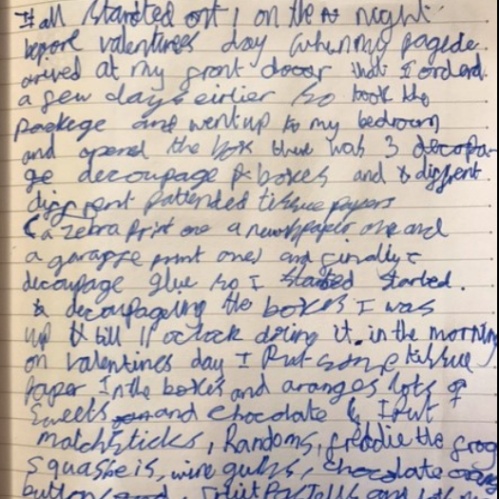 It all started out on the night
before valentines day when my pagede
arived at my front dooor that I orderd
a few days eirlier so I took the
package and went up to my bedroom
and opend the box there was 3 decopa-
ge decoupage boxes and 3 diffrent
diffrent pattended tissue papers
(a zebra print one a newspaper one and
a garaffe print one) and finally
decoupage glue so I started started.
decoupageing the boxes I was
up till 11 oclock doing it. in the morning
on valentines day I Put some tissue
paper In the boxes and aranges lots of
Sweets and chocolate I Put
matchsticks, Randoms, freddie the frog
Squasheis, wine gums, chocolate
buttons